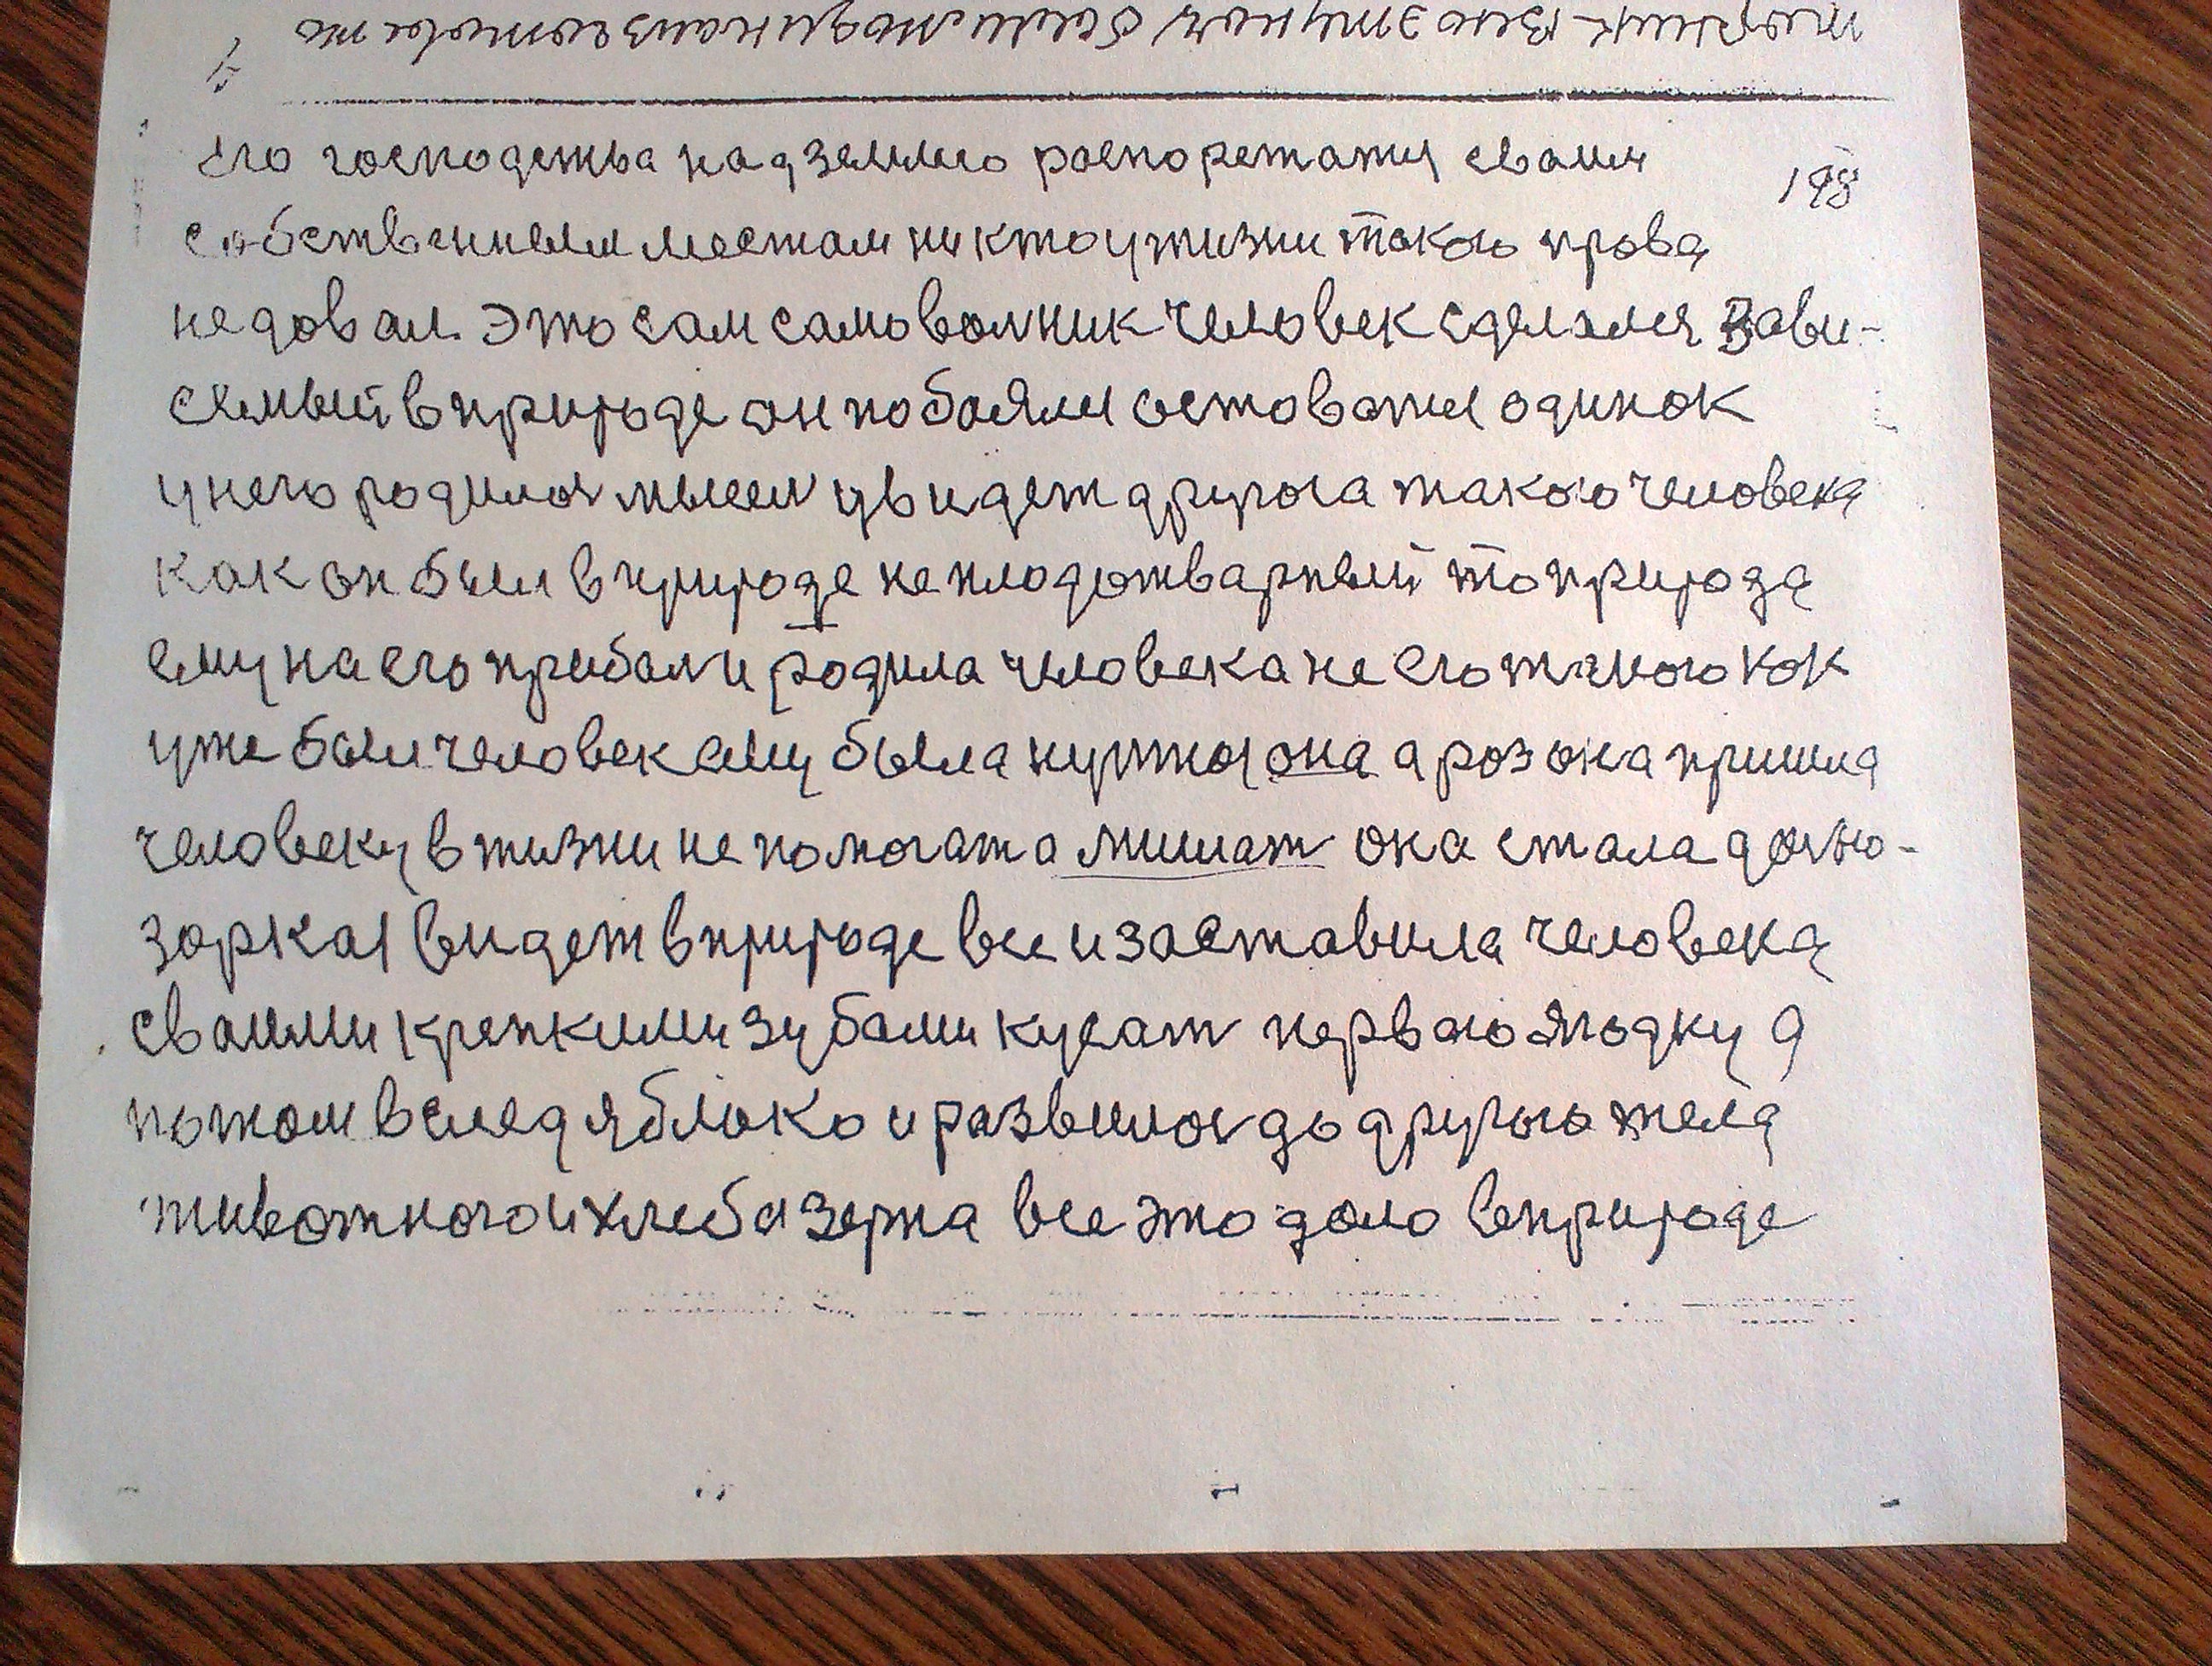 198
его господства над землею роспорежатця своим
собственыем местам никто у жизни такого права
не довал. Это сам самоволник человек сделался зави-
семый в природе он побоялся остоватся одинок
у него родилас мысел увидет другога такого человека
как он был в природе не плодотварный то природа
ему на его прибали родила человека не его точного как
уже был человек ему была нужна она а роз она пришла
человеку в жизни не помогат а мишат она стала дально-
зоркая видет в природе все и заставила человека
своими крепкими зубами кусат первою ягодку а
потом вслед яблоко и развилос до другого тела
животного и хлеба зерна все это дало в природе